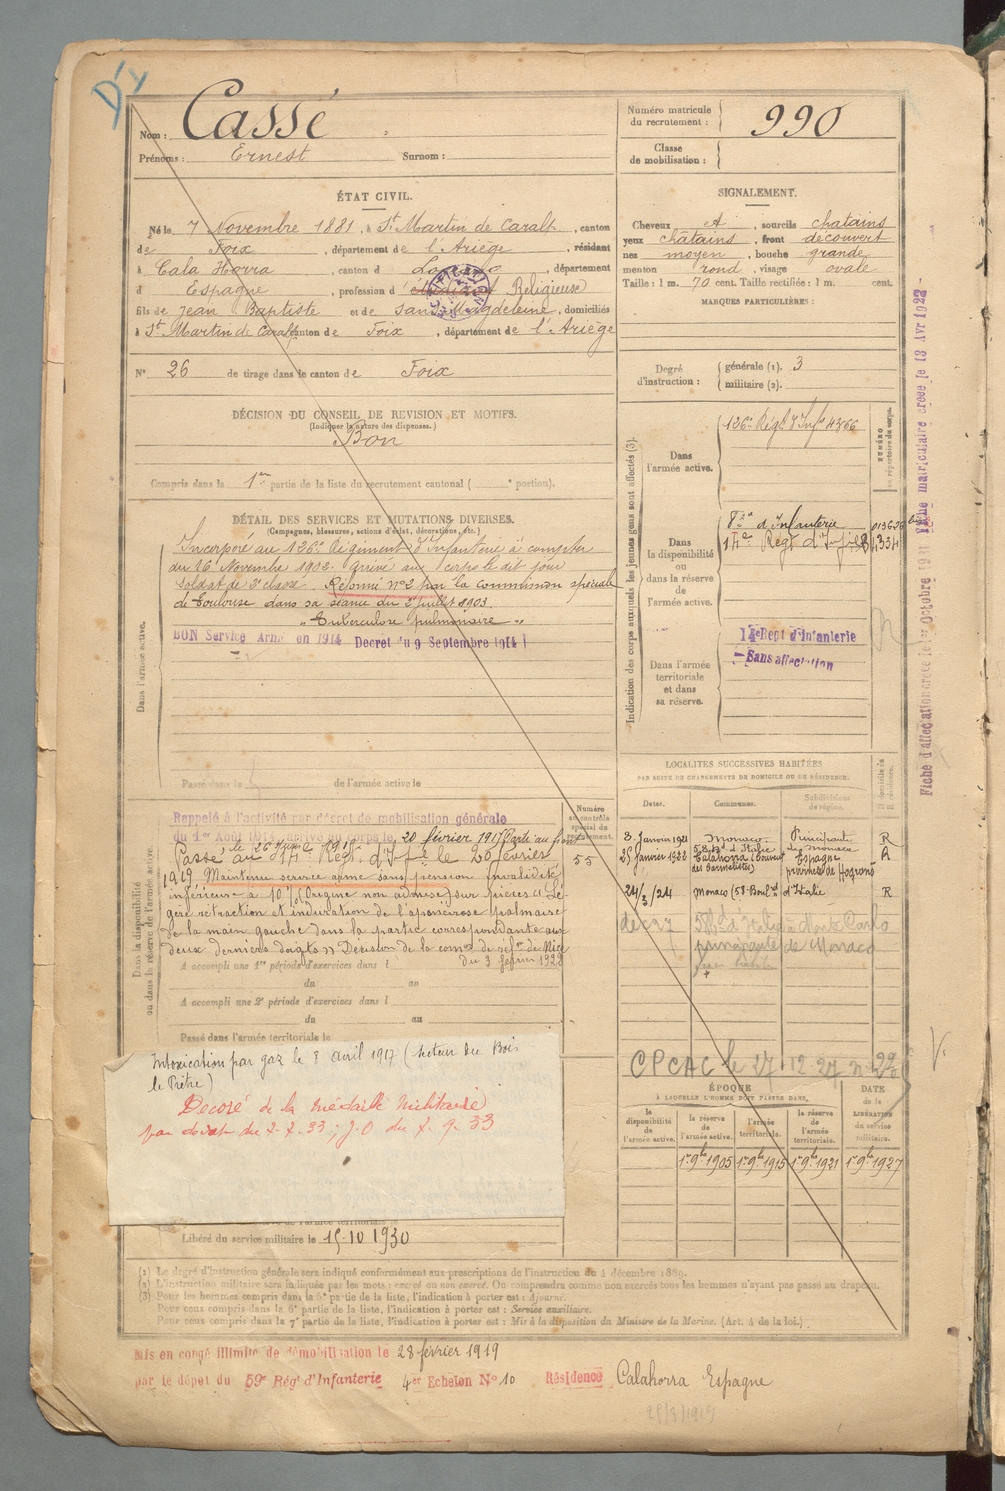 Nom : Cassé
Prénoms : Ernest Surnom :
Numéro matricule du recrutement : 990
Classe de mobilisation :
ÉTAT CIVIL.
Né le 7 Novembre 1881, à St Martin de Caralp, canton
de Foix, département de l'Ariège, résidant
à Cala Horra, canton d , département
d Espagne, profession d Religieuse
fils de Jean Baptiste et de Magdeleine, domiciliés
à St Martin de Caralp canton de Foix, département de l'Ariège
N° 26 de tirage dans le canton de Foix
SIGNALEMENT.
Cheveux et, sourcils chatains
yeux châtains, front découvert
nez moyen, bouche grande
menton rond, visage ovale
Taille : 1 m. 70 cent. Taille rectifiée : 1 m. cent.
MARQUES PARTICULIÈRES :
Degré d'instruction : générale (1). 3
militaire (2).
DÉCISION DU CONSEIL DE REVISION ET MOTIFS.
(Indiquer la nature des dispenses.)
Bon
Compris dans la 1re partie de la liste du recrutement cantonal ( e portion).
DÉTAIL DES SERVICES ET MUTATIONS DIVERSES.
(Campagnes, blessures, actions d'éclat, décorations, etc.)
Dans l'armée active.
Incorporé au 126e Régiment d'Infanterie à compter
du 16 Novembre 1902. Arrivé au corps le dit jour
soldat de 2e classe. Réformé n°2 par la commission spéciale
de Toulouse dans sa séance du 2 juillet 1903.
"Tuberculose pulmonaire"
BON Service Armé en 1914 Decret du 9 Septembre 1914
Passé dans l de l'armée active le
Indication des corps auxquels les jeunes gens sont affectés (3).
NUMÉRO au répertoire du corps.
Dans l'armée active.
126e Régt d'Infie 4366
Dans la disponibilité ou dans la réserve de l'armée active.
d'Infanterie 013628
14e Régt d'Infie
Dans l'armée territoriale et dans sa réserve.
14e Regt d'Infanterie
Sans affectation
Fiche d'affectation créée le 1er Octobre 1931 Fiche matriculaire créée le 13 Avr 1922
Dans la disponibilité ou dans la réserve de l'armée active.
Numéro au contrôle spécial du recrutement.
55
Rappelé à l'activité par décret de mobilisation générale
du 1er Août 1914, arrivé au corps le 20 février 1917 Parti au front
Passé au 14e Régt d'Infie le 20 février
1919 Maintenu service armé sans pension invalidité
inférieure à 10 % Origine non admise, sur pièces "Lé-
gère rétraction et induration de l'aponévrose palmaire
de la main gauche dans la partie correspondante aux
deux derniers doigts" Décision de la comon de réfme de Nice
du 3 février 1922
A accompli une 1re période d'exercices dans l
du au
A accompli une 2e période d'exercices dans l
du au
Passé dans l'armée territoriale le
Intoxication par gaz le 8 avril 1917 (secteur du Bois
le Prêtre)
Décoré de la médaille militaire
par décret du 2.7.33; J.O du 7.9.33
Libéré du service militaire le 15.10.1930
LOCALITÉS SUCCESSIVES HABITÉES
PAR SUITE DE CHANGEMENTS DE DOMICILE OU DE RÉSIDENCE.
Dates. Communes. Subdivisions de région. D domicile ou R résidence.
3 Janvier 1921 Monaco 58 Bd d'Italie Principauté de Monaco R
25 Janvier 1922 Calahorra Espagne R
24/3/24 Monaco (58 Boulvd d'Italie R
58 Bd d'Italie à Monte Carlo
principauté de Monaco
CPCAC le 27.12.27
ÉPOQUE
À LAQUELLE L'HOMME DOIT PASSER DANS
la disponibilité de l'armée active. la réserve de l'armée active. l'armée territoriale. la réserve de l'armée territoriale.
DATE de la LIBÉRATION du service militaire.
1er 9bre 1905 1er 9bre 1915 1er 9bre 1921 1er 9bre 1927
(1) Le degré d'instruction générale sera indiqué conformément aux prescriptions de l'instruction du 4 décembre 1889.
(2) L'instruction militaire sera indiquée par les mots : exercé ou non exercé. On comprendra comme non exercés tous les hommes n'ayant pas passé au drapeau.
(3) Pour les hommes compris dans la 5e partie de la liste, l'indication à porter est : Ajourné.
Pour ceux compris dans la 6e partie de la liste, l'indication à porter est : Service auxiliaire.
Pour ceux compris dans la 7e partie de la liste, l'indication à porter est : Mis à la disposition du Ministre de la Marine. (Art. 4 de la loi.)
Mis en congé illimité de démobilisation le 28 février 1919
par le dépôt du 59e Régt d'Infanterie 4er Echelon N° 10 Résidence Calahorra Espagne
28/3/1919